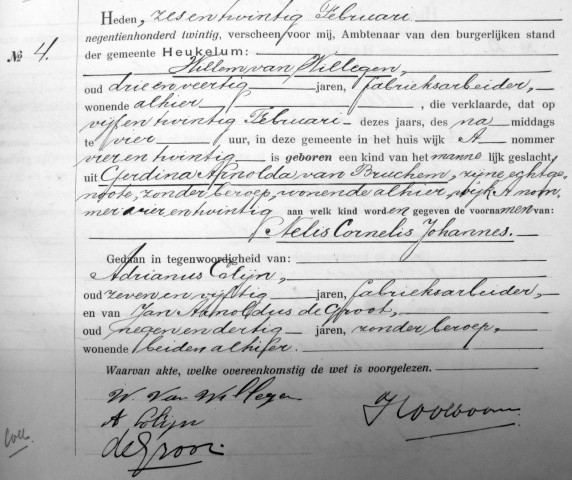 Heden, zes en twintig Februari
negentienhonderd twintig, verscheen voor mij, Ambtenaar van den burgerlijken stand
№ 4. der gemeente Heukelum:
Willem van Willegen,
oud drie en veertig jaren, fabrieksarbeider,
wonende alhier, die verklaarde, dat op
vijf en twintig Februari dezes jaars, des na middags
te vier uur, in deze gemeente in het huis wijk A nommer
vier en twintig is geboren een kind van het manne lijk geslacht,
uit Gerdina Arnolda van Bruchem, zijne echtge-
noote, zonder beroep, wonende alhier, wijk A nom-
mer vier en twintig aan welk kind worden gegeven de voornamen van:
Nelis Cornelis Johannes.
Gedaan in tegenwoordigheid van:
Adrianus Colijn,
oud zeven en vijftig jaren, fabrieksarbeider,
en van Jan Arnoldus de Groot,
oud negen en dertig jaren, zonder beroep,
wonende beiden alhier.
Waarvan akte, welke overeenkomstig de wet is voorgelezen.
W. van Willegen
A Colijn
de Groot